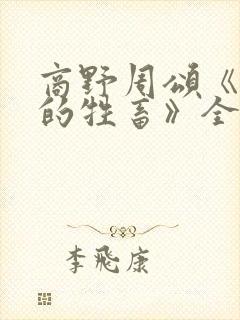 高野周頌《
的牲畜》全
李飛康